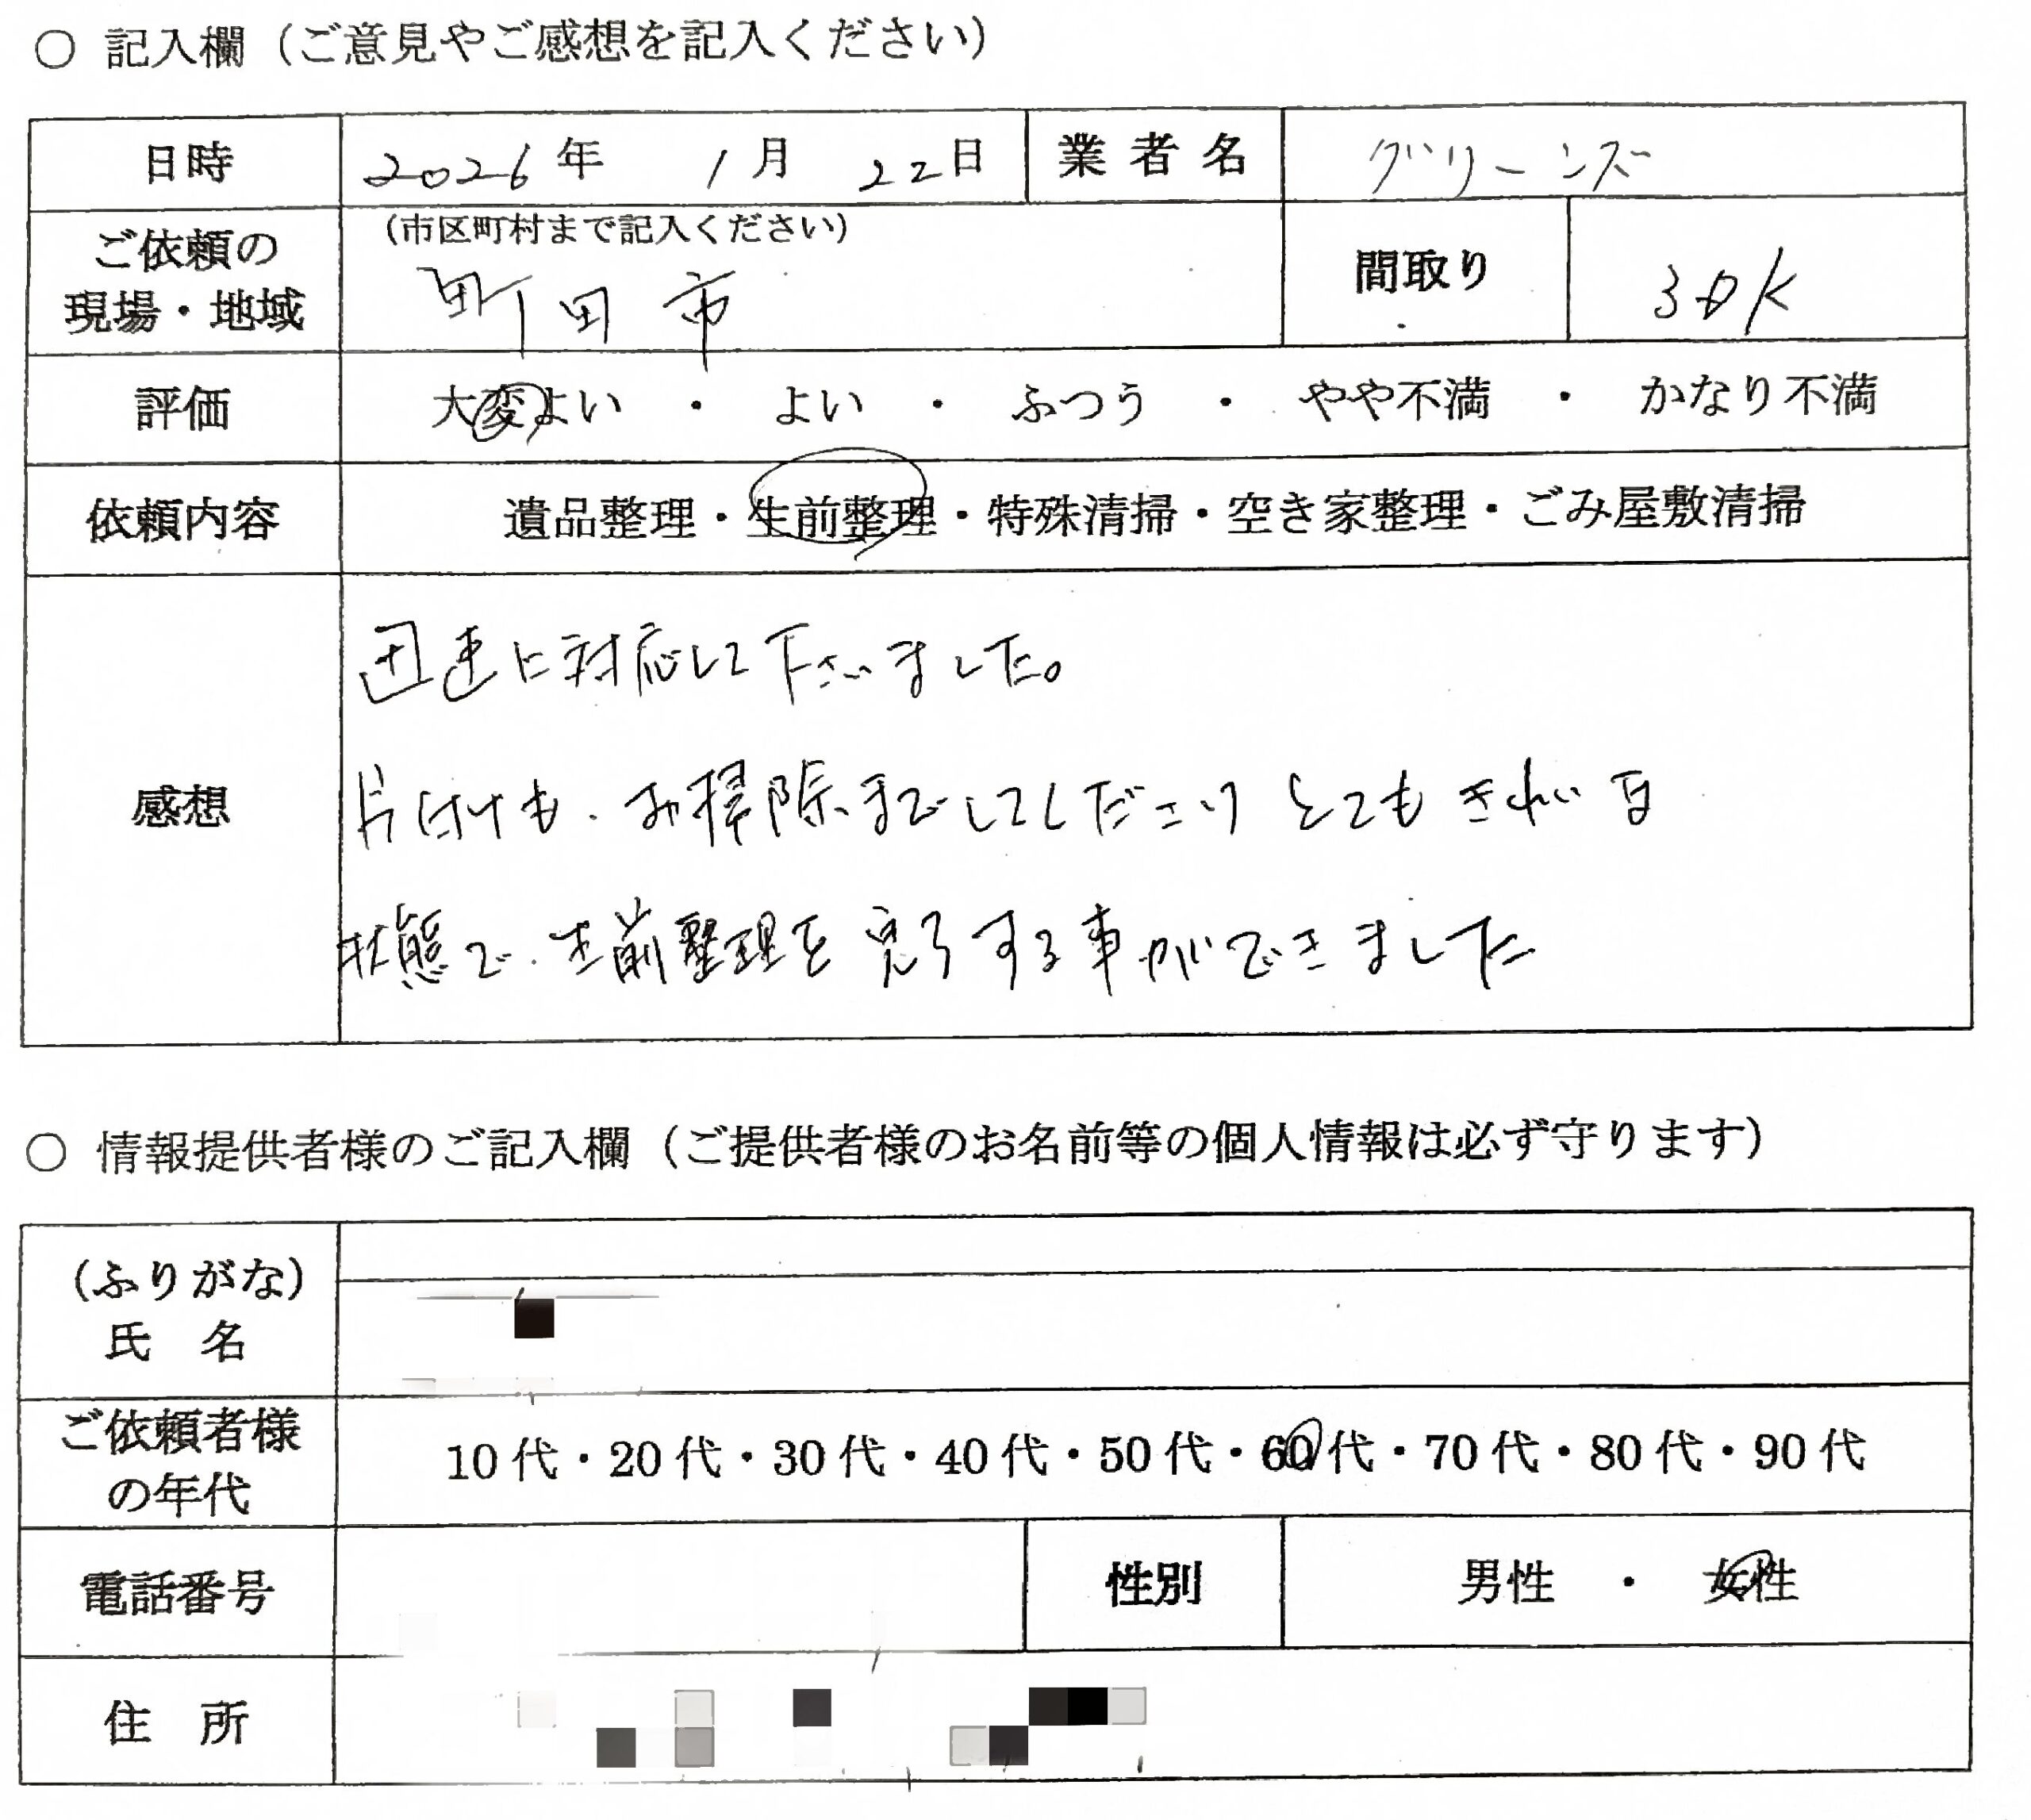 ○ 記入欄（ご意見やご感想を記入ください）
日時 2026年 1月 22日 業者名 グリーンズ
ご依頼の現場・地域 （市区町村まで記入ください） 町田市 間取り 3DK
評価 大変よい ・ よい ・ ふつう ・ やや不満 ・ かなり不満
依頼内容 遺品整理・生前整理・特殊清掃・空き家整理・ごみ屋敷清掃
感想
迅速に対応して下さいました。
片付けも、お掃除までしてくださり とてもきれいな
状態で、生前整理を完了する事ができました
○ 情報提供者様のご記入欄（ご提供者様のお名前等の個人情報は必ず守ります）
（ふりがな）
氏 名
ご依頼者様の年代 10代・20代・30代・40代・50代・60代・70代・80代・90代
電話番号 性別 男性 ・ 女性
住 所